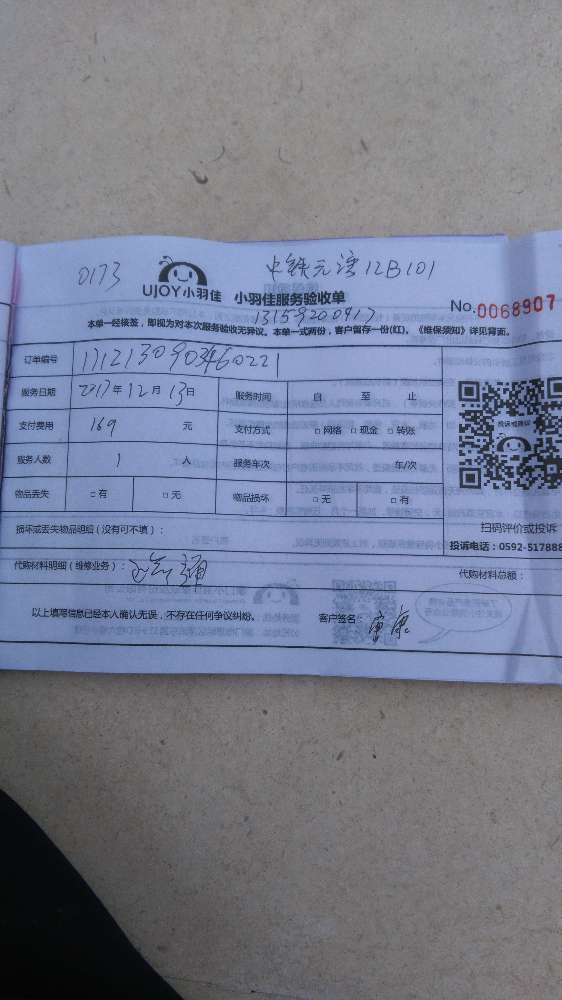 0173 中铁元湾12B101
UJOY小羽佳 小羽佳服务验收单 No.0068907
13159200917
本单一经核签，即视为对本次服务验收无异议。本单一式两份，客户留存一份(红)。《维保须知》详见背面。
订单编号
服务日期 2017年12月13日 服务时间 自 至 止
支付费用 169 元 支付方式 □网络 □现金 □转账
服务人数 1 人 服务车次 年/次
物品丢失 □有 □无 物品损坏 □无 □有
投诉或建议
损坏或丢失物品明细（没有可不填）：
扫码评价或投诉
投诉电话：0592-517888
代购材料明细（维修业务）： 代购材料总额：
以上填写信息已经本人确认无误，不存在任何争议纠纷。 客户签名：